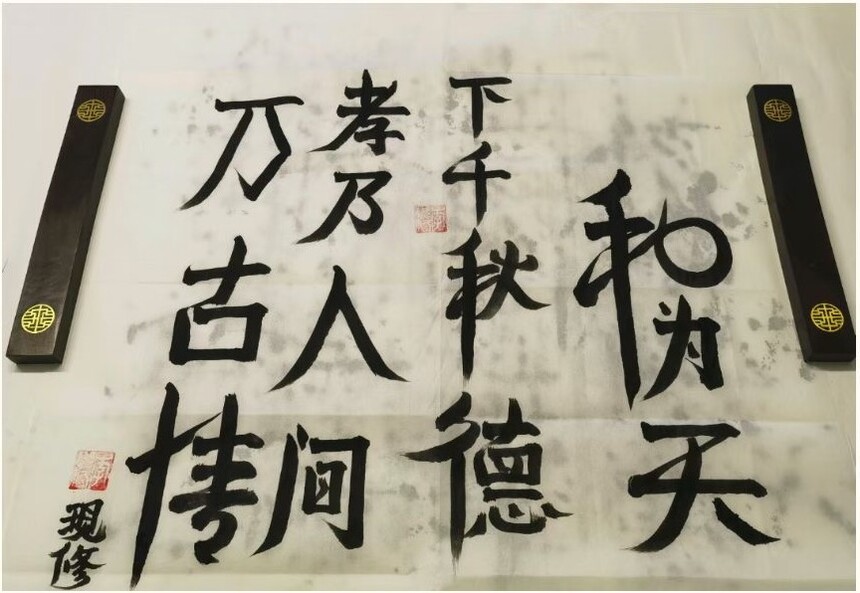 和为天
下千秋德
孝乃人间
万古情
现修